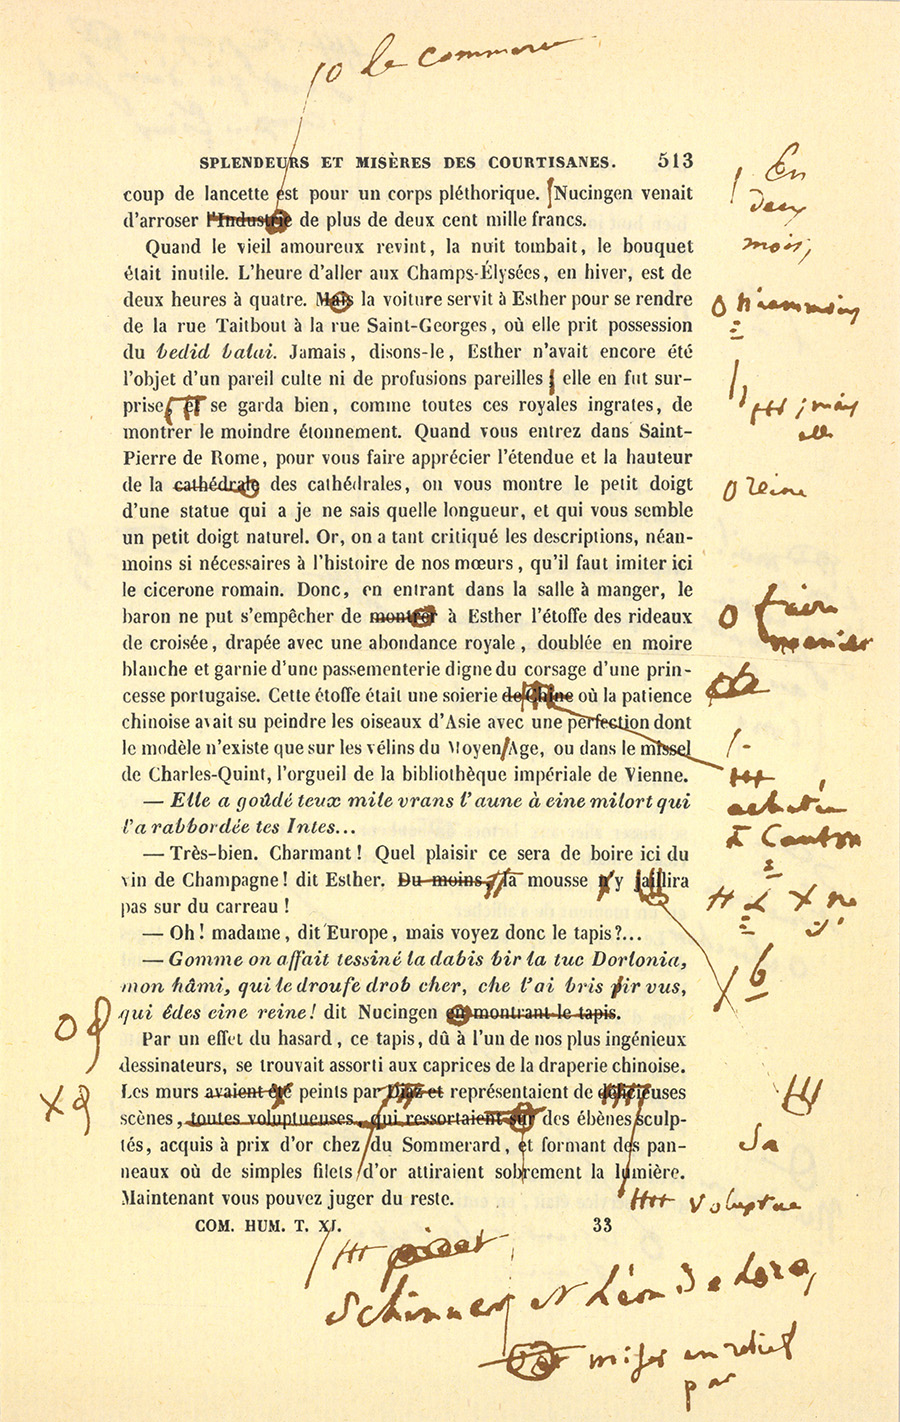 le commerce
SPLENDEURS ET MISÈRES DES COURTISANES. 513
coup de lancette est pour un corps pléthorique. Nucingen venait
En
deux
mois,
d'arroser l'Industrie de plus de deux cent mille francs.
Quand le vieil amoureux revint, la nuit tombait, le bouquet
était inutile. L'heure d'aller aux Champs-Élysées, en hiver, est de
deux heures à quatre. Mais la voiture servit à Esther pour se rendre
néanmoins
de la rue Taitbout à la rue Saint-Georges, où elle prit possession
du bedid balai. Jamais, disons-le, Esther n'avait encore été
l'objet d'un pareil culte ni de profusions pareilles ; elle en fut sur-
prise, et se garda bien, comme toutes ces royales ingrates, de
; mais
elle
montrer le moindre étonnement. Quand vous entrez dans Saint-
Pierre de Rome, pour vous faire apprécier l'étendue et la hauteur
de la cathédrale des cathédrales, on vous montre le petit doigt
reine
d'une statue qui a je ne sais quelle longueur, et qui vous semble
un petit doigt naturel. Or, on a tant critiqué les descriptions, néan-
moins si nécessaires à l'histoire de nos mœurs, qu'il faut imiter ici
le cicerone romain. Donc, en entrant dans la salle à manger, le
baron ne put s'empêcher de montrer à Esther l'étoffe des rideaux
faire
manier
de croisée, drapée avec une abondance royale, doublée en moire
blanche et garnie d'une passementerie digne du corsage d'une prin-
cesse portugaise. Cette étoffe était une soierie de Chine où la patience
chinoise avait su peindre les oiseaux d'Asie avec une perfection dont
le modèle n'existe que sur les vélins du Moyen Age, ou dans le missel
de Charles-Quint, l'orgueil de la bibliothèque impériale de Vienne.
achetée
à Canton
— Elle a goûdé teux mile vrans l'aune à eine milort qui
l'a rabbordée tes Intes...
— Très-bien. Charmant ! Quel plaisir ce sera de boire ici du
vin de Champagne ! dit Esther. Du moins, la mousse n'y jaillira
ne
pas sur du carreau !
— Oh ! madame, dit Europe, mais voyez donc le tapis ?...
— Gomme on affait tessiné la dabis bir la tuc Dorlonia,
b
mon hâmi, qui le droufe drob cher, che l'ai bris pir vus,
qui êdes eine reine ! dit Nucingen en montrant le tapis.
Par un effet du hasard, ce tapis, dû à l'un de nos plus ingénieux
dessinateurs, se trouvait assorti aux caprices de la draperie chinoise.
Les murs avaient été peints par Diaz et représentaient de délicieuses
scènes, toutes voluptueuses, qui ressortaient sur des ébènes sculp-
tés, acquis à prix d'or chez du Sommerard, et formant des pan-
neaux où de simples filets d'or attiraient sobrement la lumière.
Maintenant vous pouvez juger du reste.
voluptue
COM. HUM. T. XI. 33
Schinner et Léon de Lora,
mises en relief
par